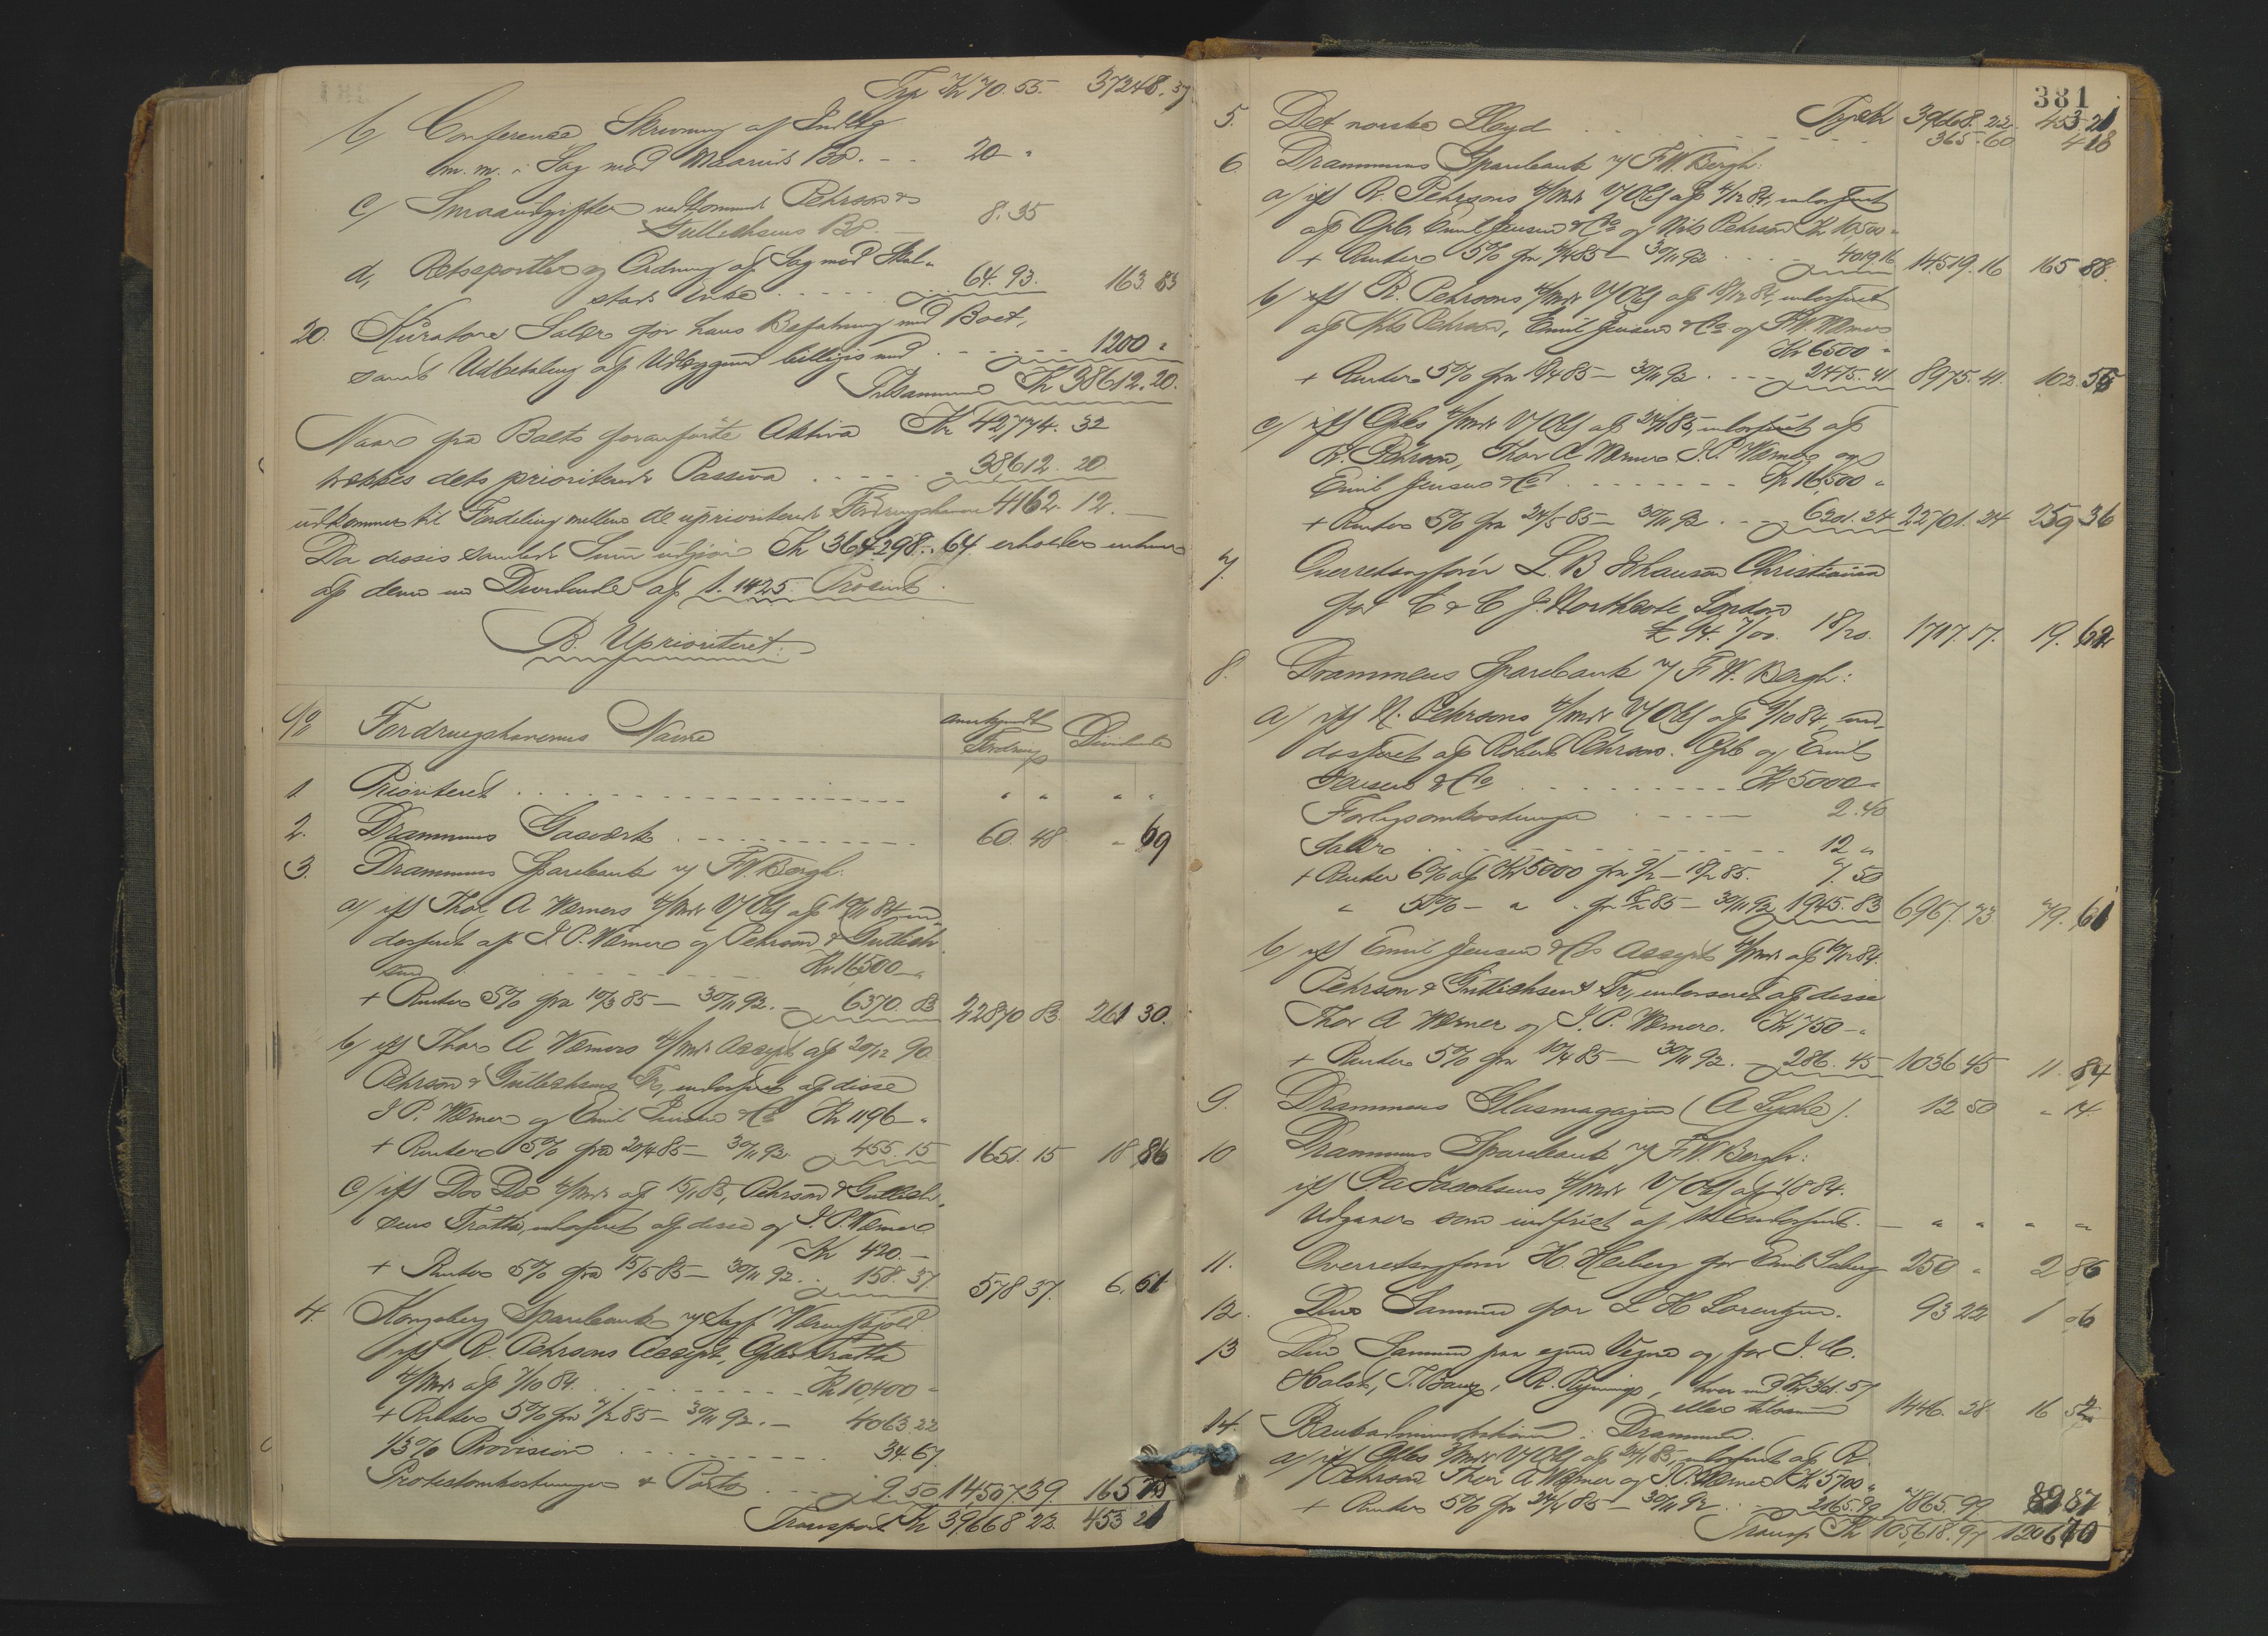 Trp Kr 70.55. 37248.37
b/ Conference Skrivning af Indlæg
m. m. i Sag mod Bo. - - 20 "
c/ Smaaudgifter vedkommende Pehrson &
Gullichsens Bo. — 8.35
d, Retssportler og Ordning af Sag mod
stads Enke . . . . . 64.93. 163 83
20. Kurators Salær for hans Befatning med Boet,
samt Udbetaling af Udlæggene billiges med . . . . 1200 "
Tilsammen Kr 38612.20.
Naar fra Boets foranførte Aktiva Kr 42,774. 32
trækkes dets prioriterede Passiva . . . . " 38612. 20
udkommer til Fordeling mellem de uprioriterede Fordringshavere 4162. 12. —
Da disses samlede Sum udgjør Kr 364,298.64 erholder enhver
af dem en Dividende af 1.1425 Procent.
B. Uprioriteret:
No Fordringshaverens Navn Anerkjendt Fordring Dividende
1. Prioriteret . . . . . . . . " " " "
2. Drammens Gasværk . . . . . . 60.48 " 69
3. Drammens Sparebank v/ F.W. Bergh:
a/ iflg Thor A Werners 4/mdr V/Obl af 10/11 84, en-
dosseret af J. P. Werner og Pehrson & Gullich-
sen . . . . . . Kr 16,500 — "
+ Renter 5% fra 10/3 85 — 30/11 92. — 6370. 83 22870 83 261 30.
b/ iflg Thor A Werners 4/mdr Accept af 20/12 90
Pehrson & Gullichsens Tr, endosseret af disse
J P. Werner og Emil Jensen & Co Kr 1196 — "
+ Renter 5% fra 20/4 85 — 30/11 92. 455. 15 1651. 15 18 86
c/ iflg Do Do 4/mdr af 15/1 85, Pehrson & Gullich-
sens Tratte, endosseret af disse og J. P. Werner
Kr 420. —
+ Renter 5% fra 15/5 85 — 30/11 92 . . 158. 37 578 37. 6. 61
4. Kongsberg Sparebank v/ Sagf. Werenskjold
iflg R. Pehrsons Accept, Tratte
4/mdr af 7/10 84. . . . . . . Kr 10,400 "
+ Renter 5% fra 7/2 85 — 30/11 92. — 4063.22
1/3% Provision . . . . . . 34.67.
Protestomkostninger & Porto . . . 9.50 14507.39. 165 75
Transport Kr 39668 22. 453 21
381
Trp Kr 39668.22. 453.21
5. Det norske Lloyd . . . . . . 365.60 4 18
6. Drammens Sparebank v/ F.W. Bergh:
a/ iflg R. Pehrsons 4/mdr V/Obl af 4/12 84, endosseret
af Emil Jensen & Co og Nils Pehrson Kr 10,500 "
+ Renter 5% fra 4/4 85 — 30/11 92 . . . 4019.16 14519.16 165 88.
b/ iflg R. Pehrsons 4/mdr V/Obl af 18/12 84, endosseret
af Nils Pehrson, Emil Jensen & Co og J.P. Werner
Kr 6500 "
+ Renter 5% fra 18/4 85 — 30/11 92 . . . 2475.41 8975.41. 102.55
c/ iflg 4/mdr V/Obl af 24/1 85, endosseret af
R. Pehrson, Thor A Werner J. P. Werner og
Emil Jensen & Co . . . . . . . . Kr 16,500 "
+ Renter 5% fra 24/5 85 — 30/11 92 . . 6201.24 22701.24 259 36
7. Overretssagfører L. B Christiania
for C & C J. Northcote London
£ 94. 7/00. 18/20. 1717.17. 19. 62
8. Drammens Sparebank v/ F W. Bergh:
a/ iflg N. Pehrsons 4/mdr V/Obl af 9/10 84, en-
dosseret af Robert Pehrson, og Emil
Jensen & Co . . . . . . . . Kr 5000 "
Forligsomkostninger . . . . . 2.40
Salær . . . . . . . . . . . 12 "
+ Renter 6% af Kr 5000 fra 9/2 — 18/2 85. 7.50
" 5% — " " fra 18/2 85 — 30/11 92 1945.83 6967.73 79. 61
b/ iflg Emil Jensen & Co Accept 4/mdr af 10/12 84.
Pehrson & Gullichsens Tr, endosseret af disse
Thor A Werner og J. P. Werner. Kr 750 — "
+ Renter 5% fra 10/4 85 — 30/11 92. — 286. 45 1036 45 11. 84
9. Drammens Glasmagazin (A Lyche). 12 50 " 14.
10 Drammens Sparebank v/ F.W. Bergh:
iflg Jacobsens 4/mdr V/Obl af 84.
Udgaar som indfriet af Endossent. — " " " "
11. Overretssagfører H. Heiberg for Emil 250 " 2 86
12. Den Samme for L H Lorentzen. 93 22 1 06
13 Den Samme paa egne Vegne og for J. C.
Holst, J. Bang, R. Rynning, hver med Kr 361.57
eller tilsammen 1446.28 16 52
14. Bankadministrationen i Drammen.
a/ iflg 3/mdr V/Obl af 24/1 85, endosseret af R
Pehrson Thor A Werner og J. P. Werner Kr 5700 "
+ Renter 5% fra 24/4 85 — 30/11 92 . . 2165.99 7865.99 89 87
Transp Kr 105,618.97 1206 70